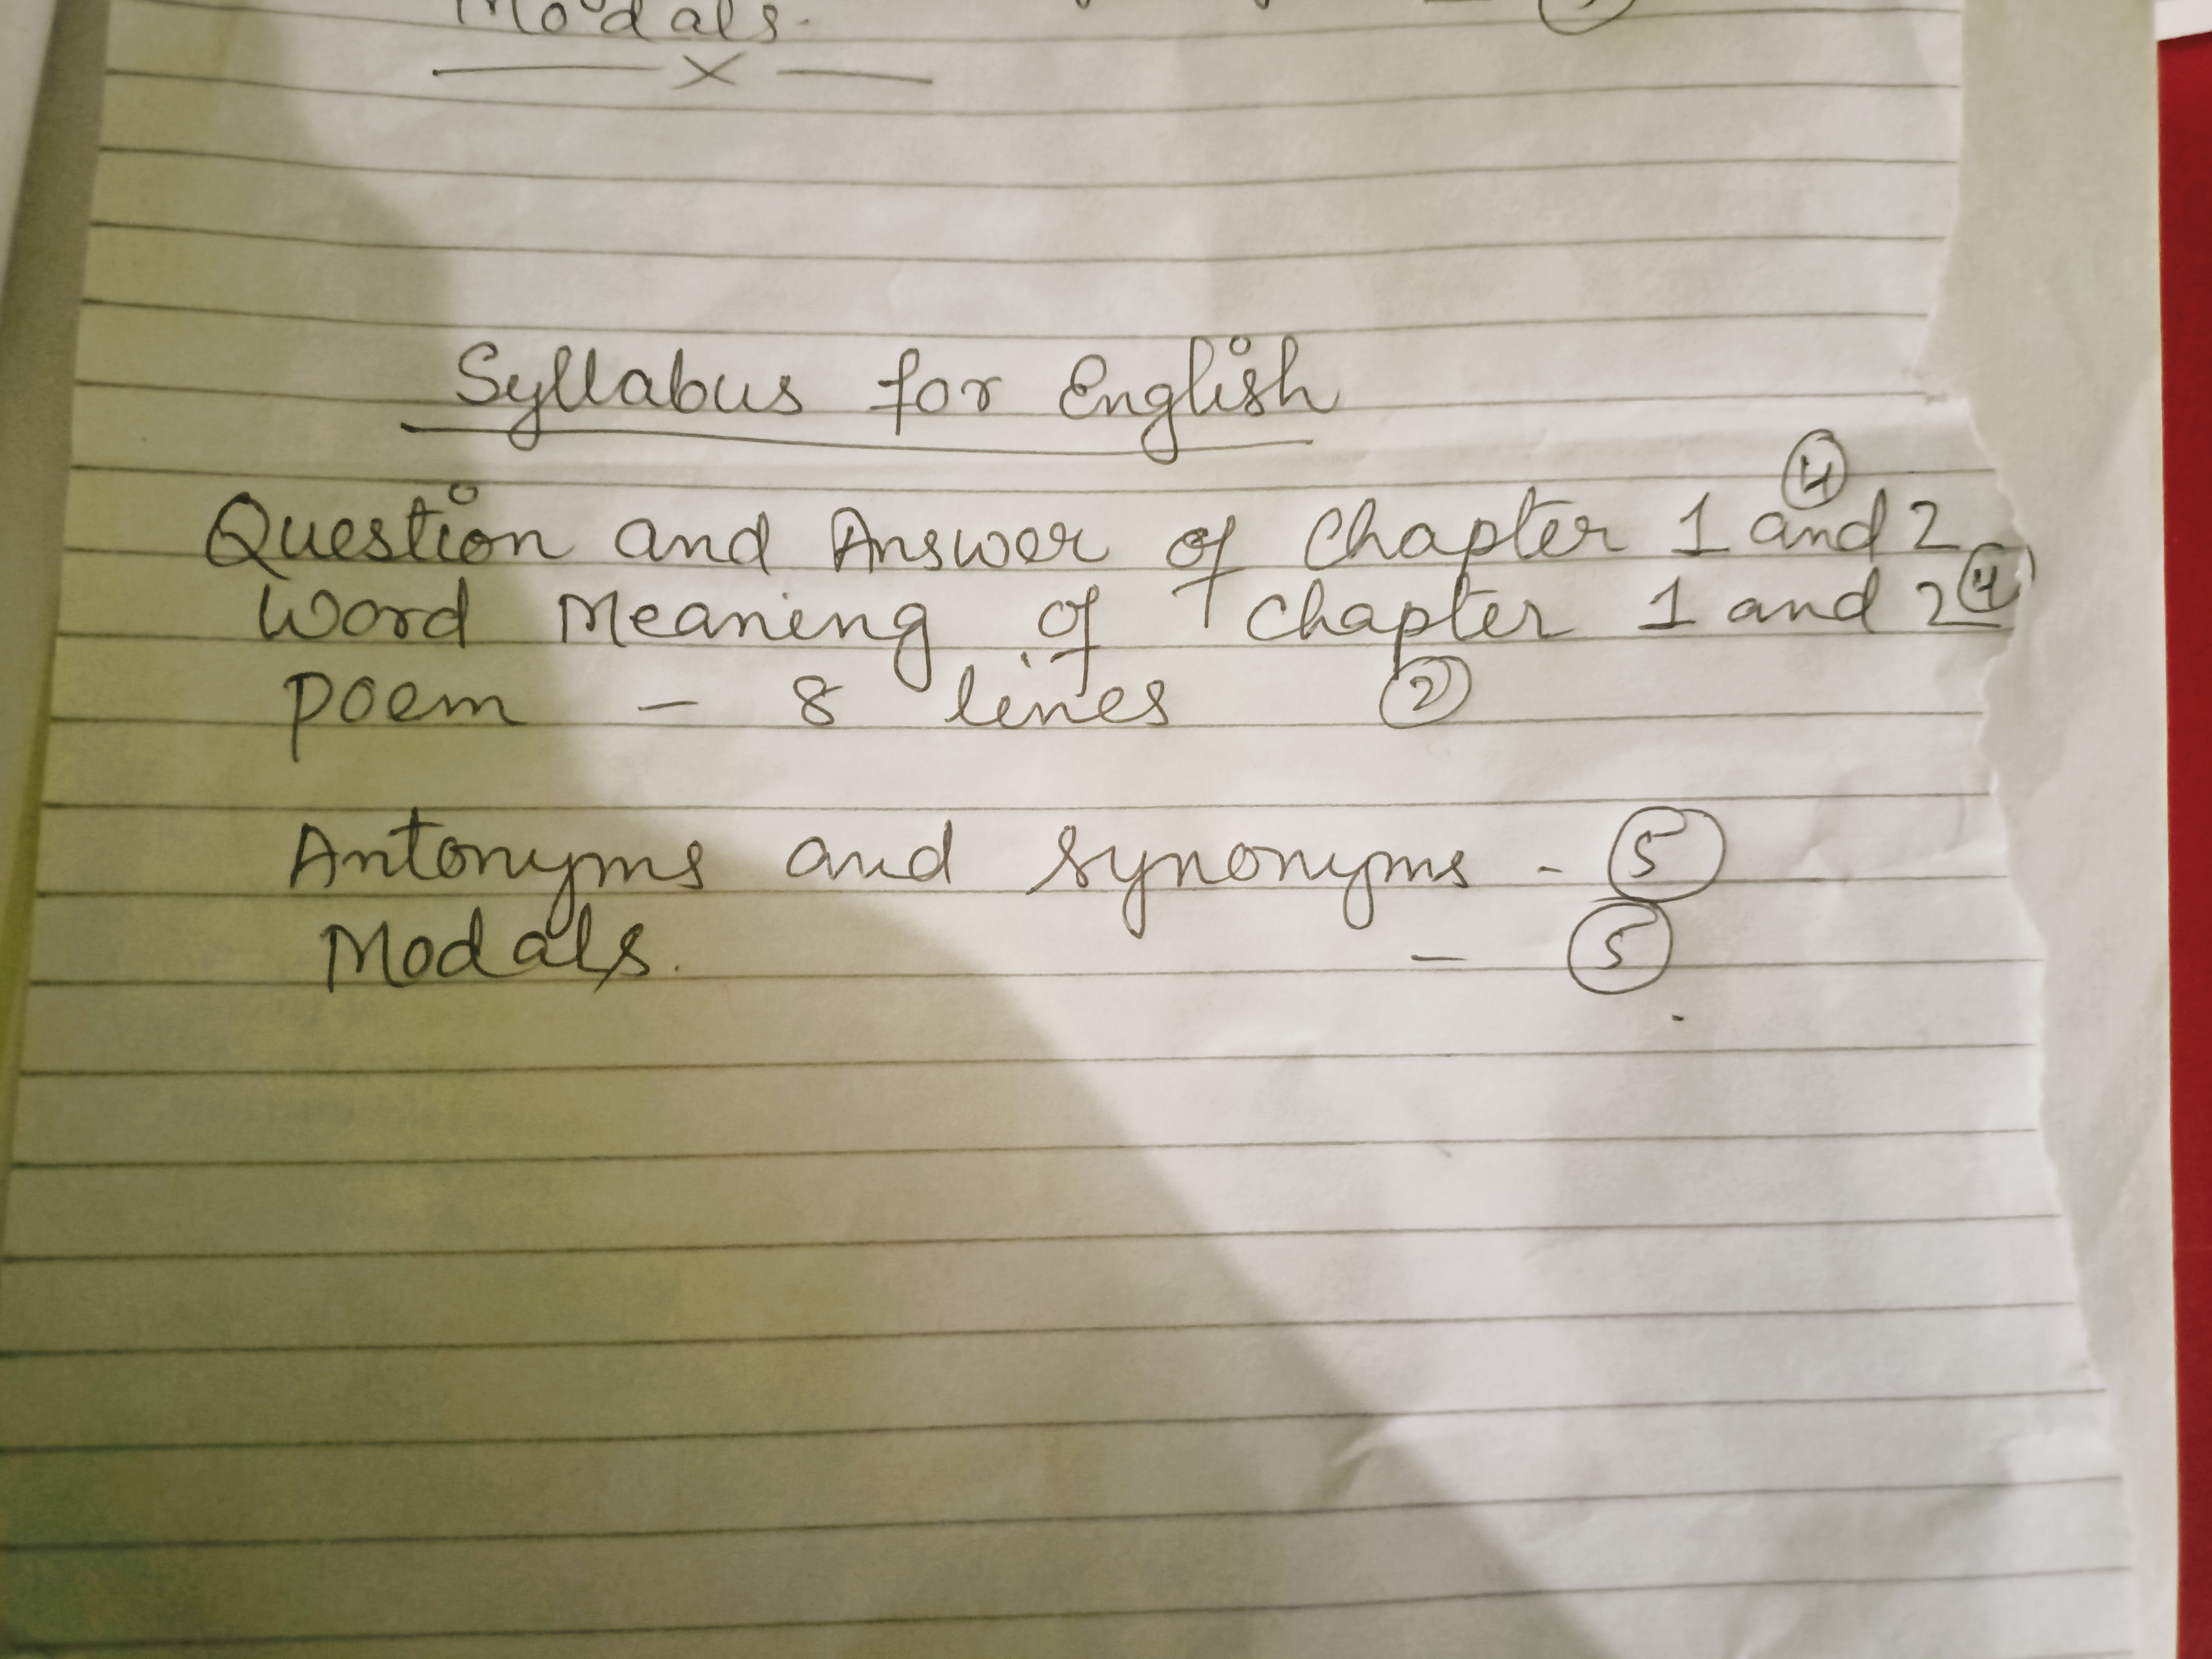 Modals.
X
Syllabus for English
Question and Answer of Chapter 1 and 2 4
Word Meaning of Chapter 1 and 2 4
Poem - 8 lines 2
Antonyms and Synonyms - 5
Modals. - 5